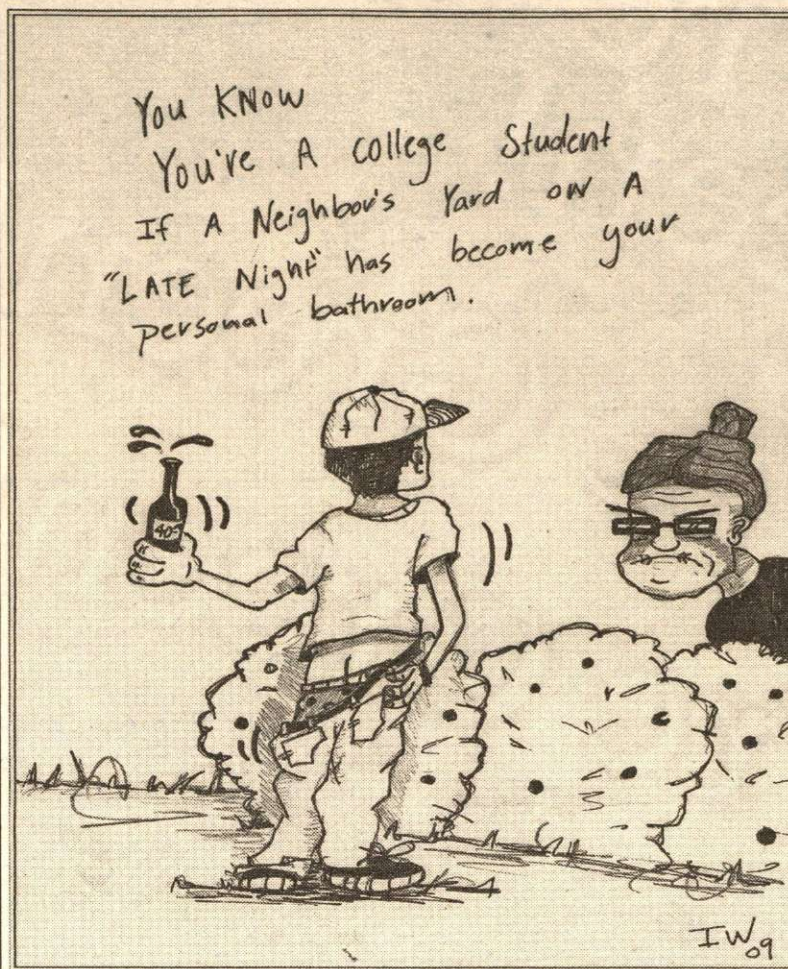 You KNow
You're A college Student
If A Neighbor's Yard oN A
"LATE Night" has become your
personal bathroom.
40s
IW
09